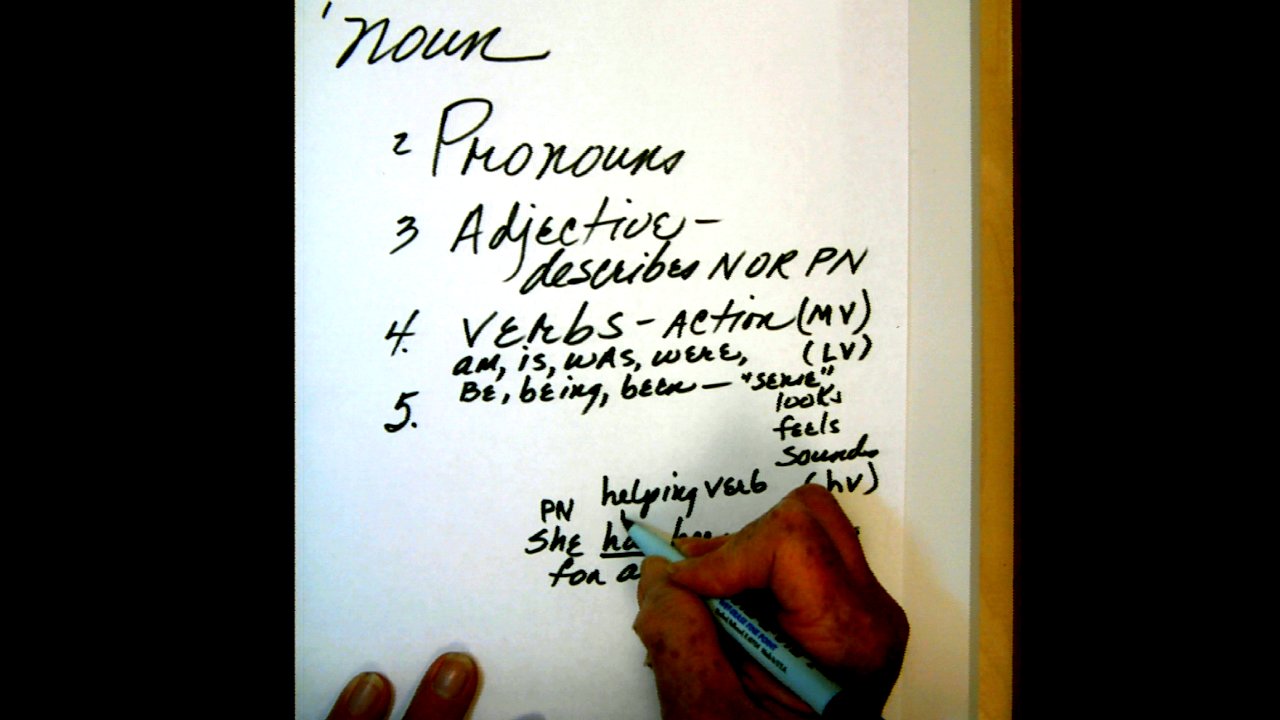 ' noun
2 Pronouns
3 Adjective -
describes N OR PN
4. VERbS - ACTION (MV)
AM, is, WAS, WERE, (LV)
BE, being, been - "sense"
looks
5. feels
sounds
helping VERb (hV)
PN
ShE
for